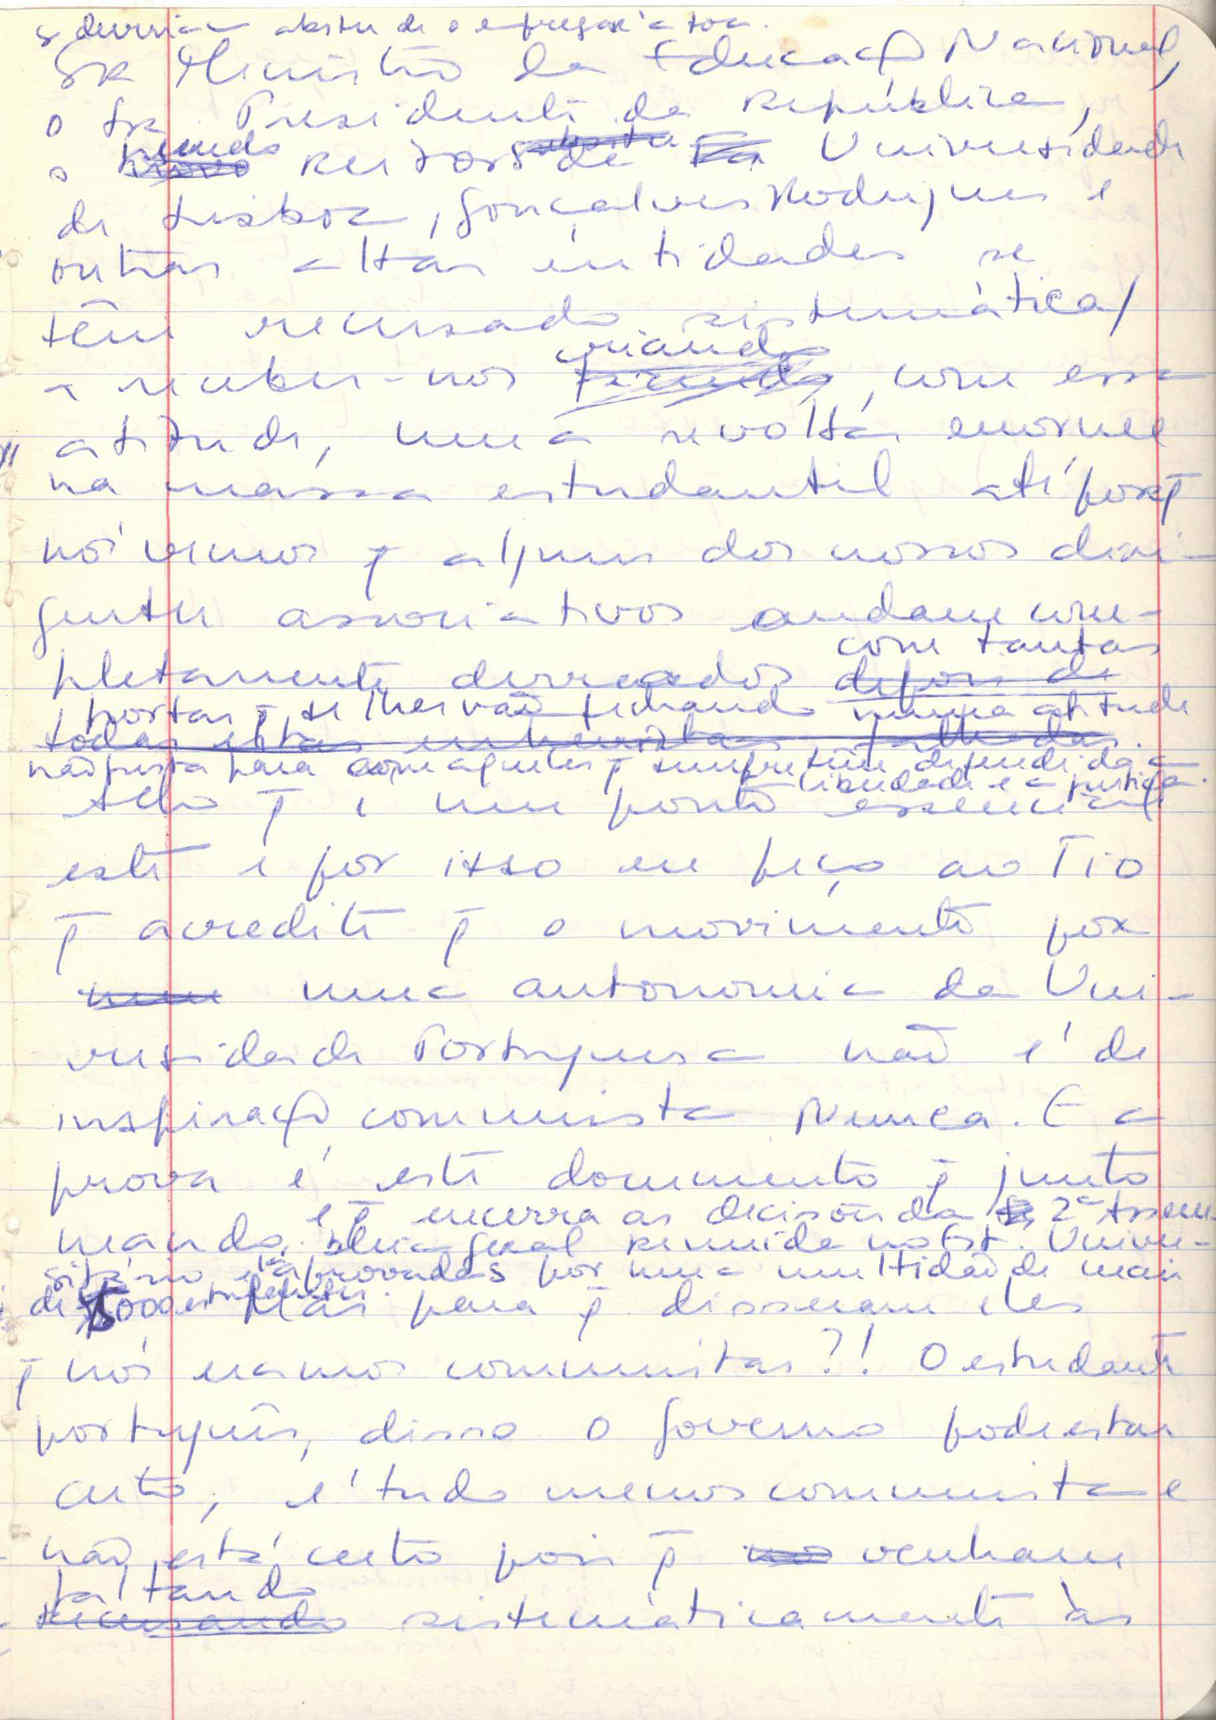 deveriam abster de o empregar à toa.
Sr Ministro da Educação Nacional,
o Sr. Presidente da República,
o pseudo Reitor da Universidade
de Lisboa, Gonçalves Rodrigues e
outras altas entidades se
têm recusado sistemàtica/
a receber-nos criando, com essa
atitude, uma revolta enorme
na massa estudantil até porq̃
nós vemos q̃ alguns dos nossos diri-
gentes associativos andam com-
com tantas
pletamente derreados depois de
portas q̃ se lhes vão fechando numa atitude
todas estas entrevistas falhadas.
não justa para com aqueles q̃ sempre têm defendido a
liberdade e a justiça.
Acho q̃ é um ponto essencial
este é por isso eu peço ao Tio
q̃ acredite q̃ o movimento por
uma autonomia da Uni-
versidade Portuguesa não é de
inspiração comunista Nunca. E a
prova é este documento q̃ junto
e q̃ encerra as decisões da 2ª Assem-
mando. bleia geral reunida no Est. Univer-
sitário e aprovadas por uma multidão de mais
de 5000 estudantes.
Mas para q̃ disseram eles
q̃ nós eramos comunistas?! O estudante
português, disso o Governo pode estar
certo, é tudo menos comunista e
não está certo pois q̃ venham
faltando
recusando sistemàticamente às